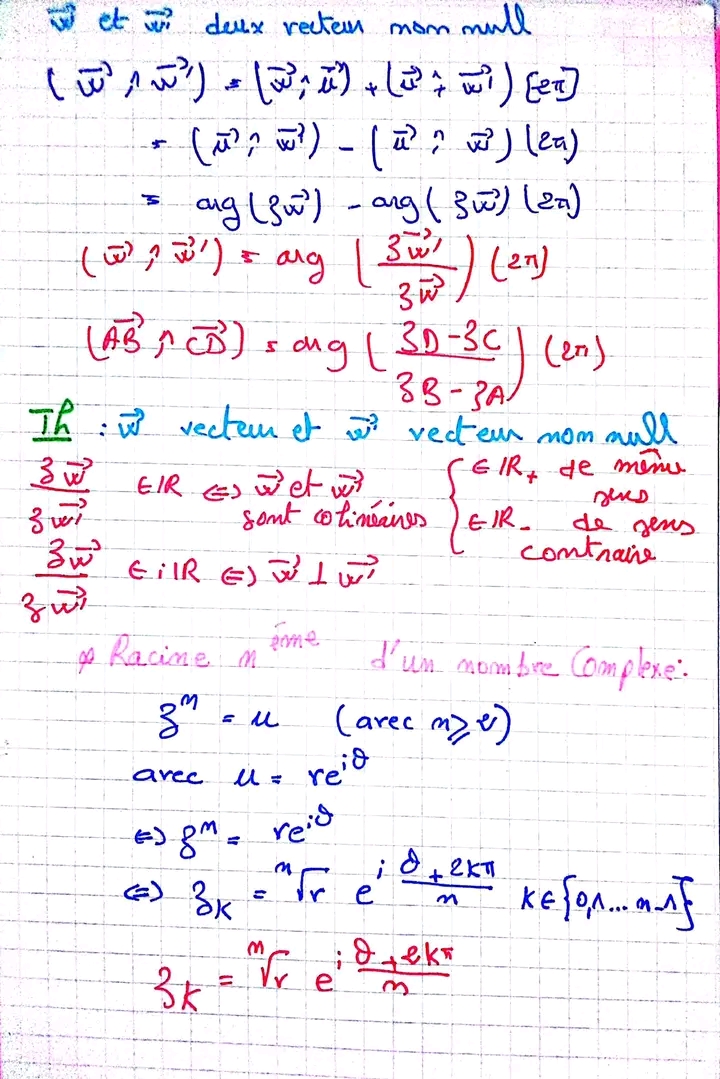 w⃗ et w⃗' deux vecteur non null
(w⃗ ^ w⃗') = (w⃗ ^ u⃗) + (u⃗ ^ w⃗') [2π]
= (u⃗ ^ w⃗') - (u⃗ ^ w⃗) (2π)
= arg (zw⃗') - arg (zw⃗) (2π)
(w⃗ ^ w⃗') = arg (zw⃗' / zw⃗) (2π)
(AB⃗ ^ CD⃗) = arg (zD-zC / zB-zA) (2π)
Th : w⃗ vecteur et w⃗' vecteur non null
zw⃗ / zw⃗' ∈ IR ⇔ w⃗ et w⃗' sont colinéaires { ∈ IR+ de même sens
∈ IR- de sens contraire
zw⃗ / zw⃗' ∈ iIR ⇔ w⃗ ⊥ w⃗'
Racine n ème d'un nombre Complexe:
z^n = u (avec n ⩾ 2)
avec u = re^iθ
⇔ z^n = re^iθ
⇔ zK = ⁿ√r e^i (θ+2kπ)/n K ∈ {0,1...n-1}
zK = ⁿ√r e^i (θ+2kπ)/n